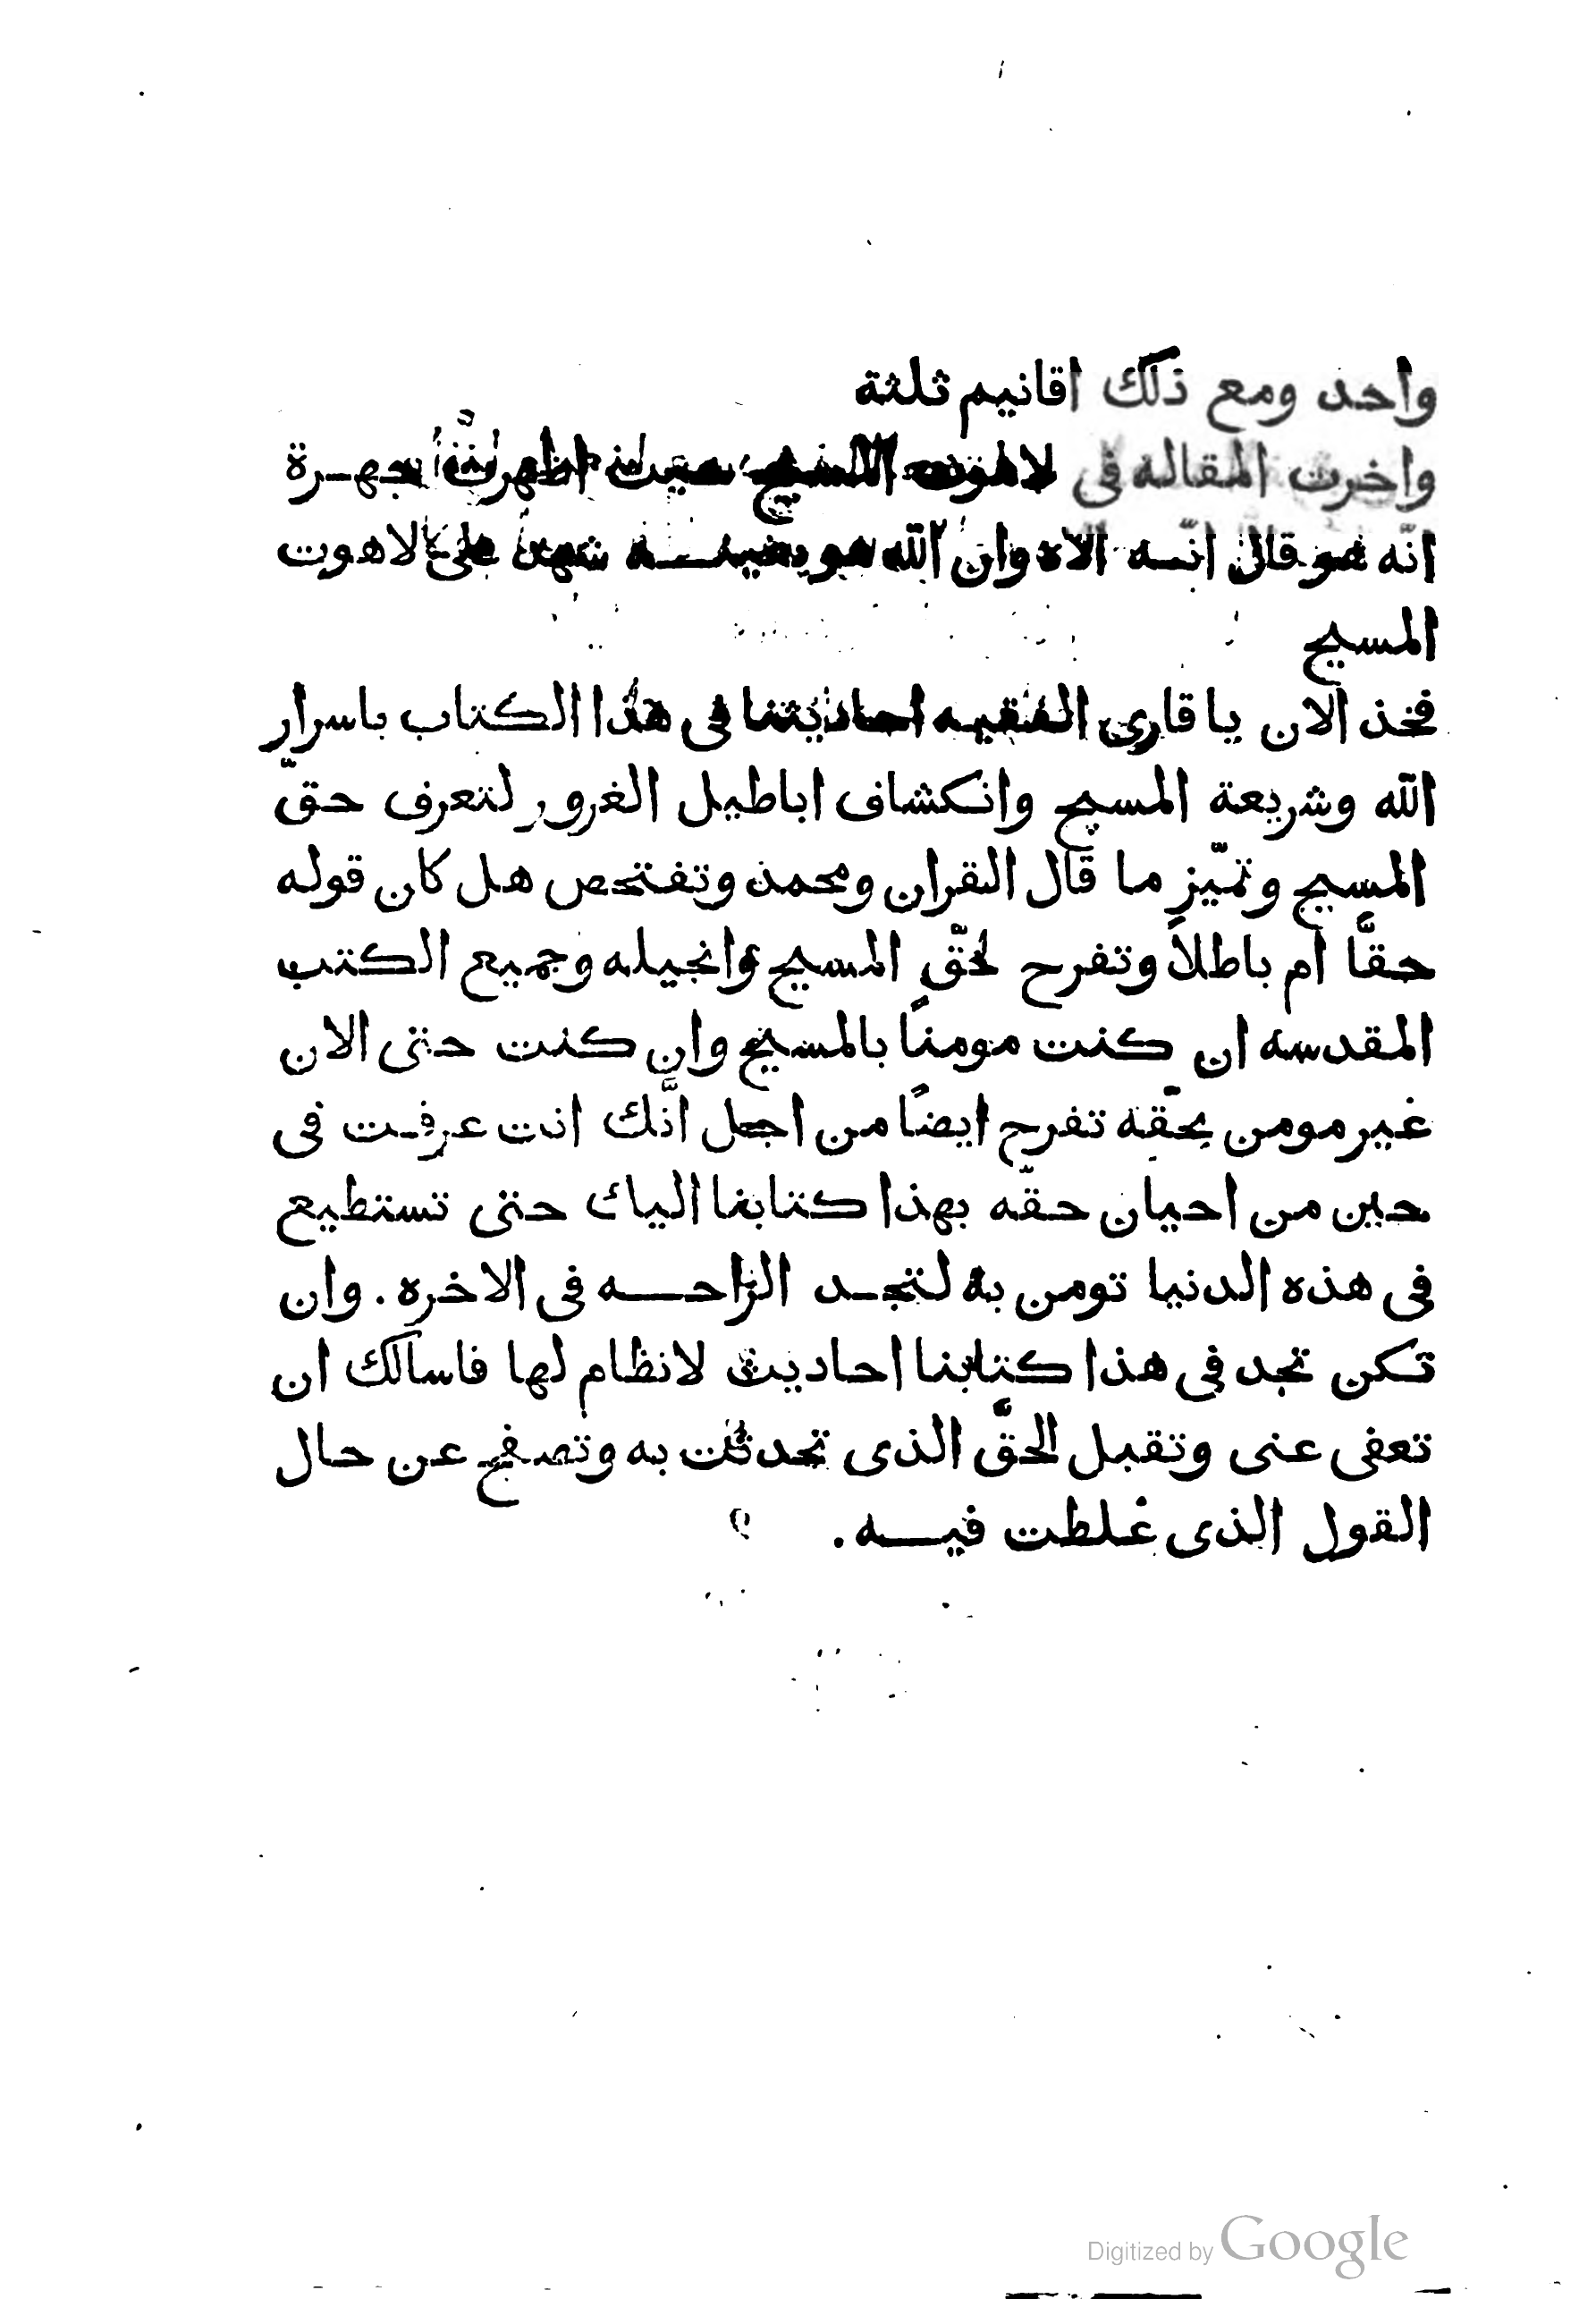 واحد ومع ذلك اقانيم ثلثة
واخرت المقاله فى لاهوت المسيح حيث اظهرت جهـرة
انّه هو قال انّـه الاه وان الله هو بعينـــه شهد على لاهوت
المسيح
فخذ الان يا قارى الفقيـه احاديثنا فى هذا الكتاب باسرار
الله وشريعة المسيح وانكشاف اباطيل الغرور لتعرف حقّ
المسيح وتميّز ما قال القران ومحمد وتفتحص هل كان قوله
حقًّا أم باطلاً وتفرح لحقّ المسيح وانجيله وجميع الكتب
المقدسه ان كنت مومنًا بالمسيح وان كنت حتى الان
غير مومن بحقّه تفرح ايضًا من اجل انّك انت عرفـت فى
حين من احيان حقّه بهذا كتابنا الياك حتى تستطيع
فى هذه الدنيا تومن به لتجـد الرّاحـــه فى الاخره. وان
تكن تجد فى هذا كتابنا احاديث لا نظام لها فاسالك ان
تعفى عنى وتقبل الحقّ الذى تحدثت به وتصفح عن حال
القول الذى غلطت فيـــه.
Digitized by Google